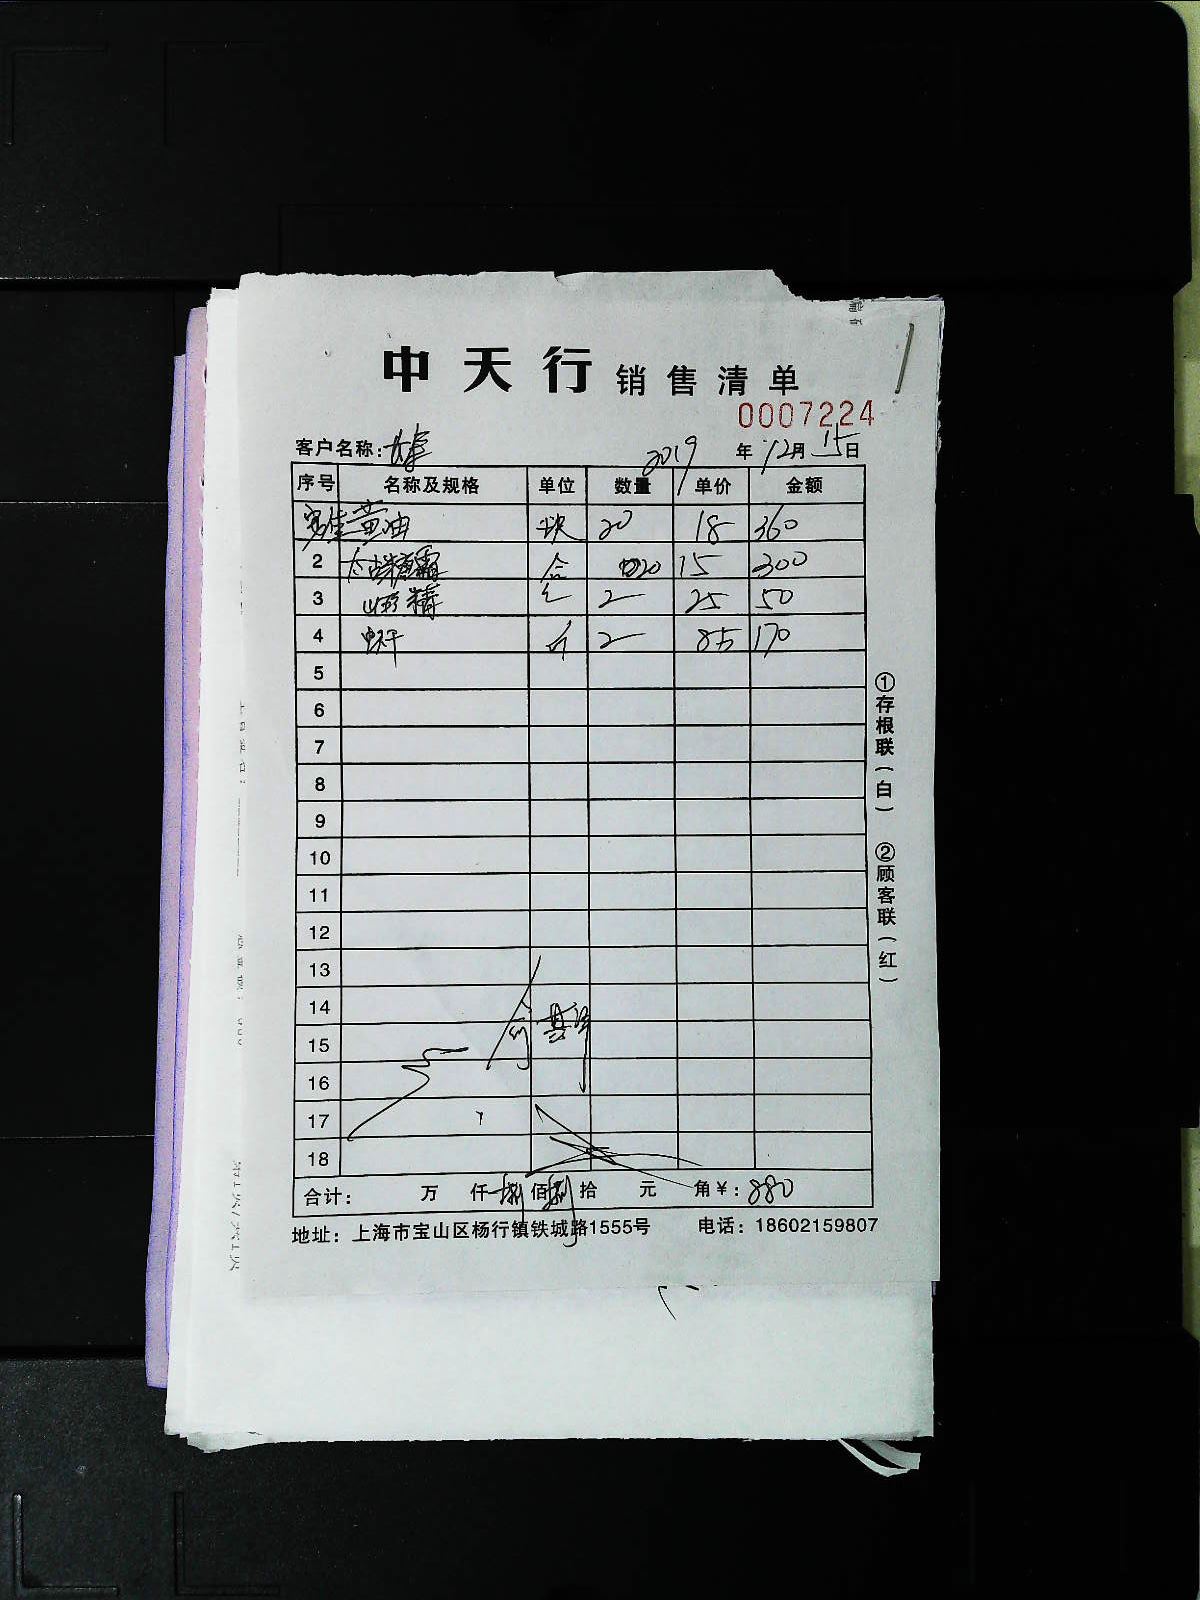 中天行 销售清单
0007224
客户名称: 2019 年 12月 15日
序号 名称及规格 单位 数量 单价 金额
黄油 块 20 18 360
2 糖霜 合 20 15 300
3 2 25 50
4 虾干 斤 2 85 170
5
6
7
8
9
10
11
12
13
14
15
16
17
18
合计: 万 仟 捌 佰 捌 拾 元 角 ¥: 880
地址: 上海市宝山区杨行镇铁城路1555号 电话: 18602159807
①存根联(白) ②顾客联(红)